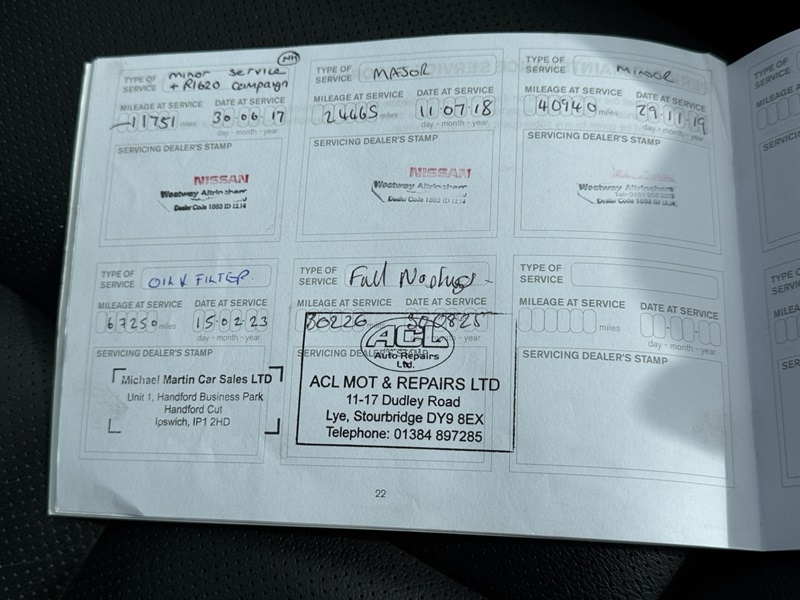 NH
TYPE OF SERVICE minor service + R1620 campaign
MILEAGE AT SERVICE DATE AT SERVICE
11751 miles 30 06 17
day - month - year
SERVICING DEALER'S STAMP
NISSAN
Westway Altrincham
Dealer Code 1883 ID 12.14
TYPE OF SERVICE MAJOR
MILEAGE AT SERVICE DATE AT SERVICE
24465 miles 11 07 18
day - month - year
SERVICING DEALER'S STAMP
NISSAN
Westway Altrincham
Dealer Code 1883 ID 12.14
TYPE OF SERVICE MINOR
MILEAGE AT SERVICE DATE AT SERVICE
40940 miles 29 11 19
day - month - year
SERVICING DEALER'S STAMP
Westway Altrincham
Dealer Code 1883 ID 12.14
TYPE OF SERVICE OIL & FILTER.
MILEAGE AT SERVICE DATE AT SERVICE
67250 miles 15 02 23
day - month - year
SERVICING DEALER'S STAMP
Michael Martin Car Sales LTD
Unit 1, Handford Business Park
Handford Cut
Ipswich, IP1 2HD
TYPE OF SERVICE Full
MILEAGE AT SERVICE DATE AT SERVICE
80226 300825
SERVICING DEALER'S STAMP
ACL
Auto Repairs
Ltd.
ACL MOT & REPAIRS LTD
11-17 Dudley Road
Lye, Stourbridge DY9 8EX
Telephone: 01384 897285
TYPE OF SERVICE
MILEAGE AT SERVICE DATE AT SERVICE
miles
day - month - year
SERVICING DEALER'S STAMP
22
TYPE OF SERVICE
MILEAGE
SERVICING